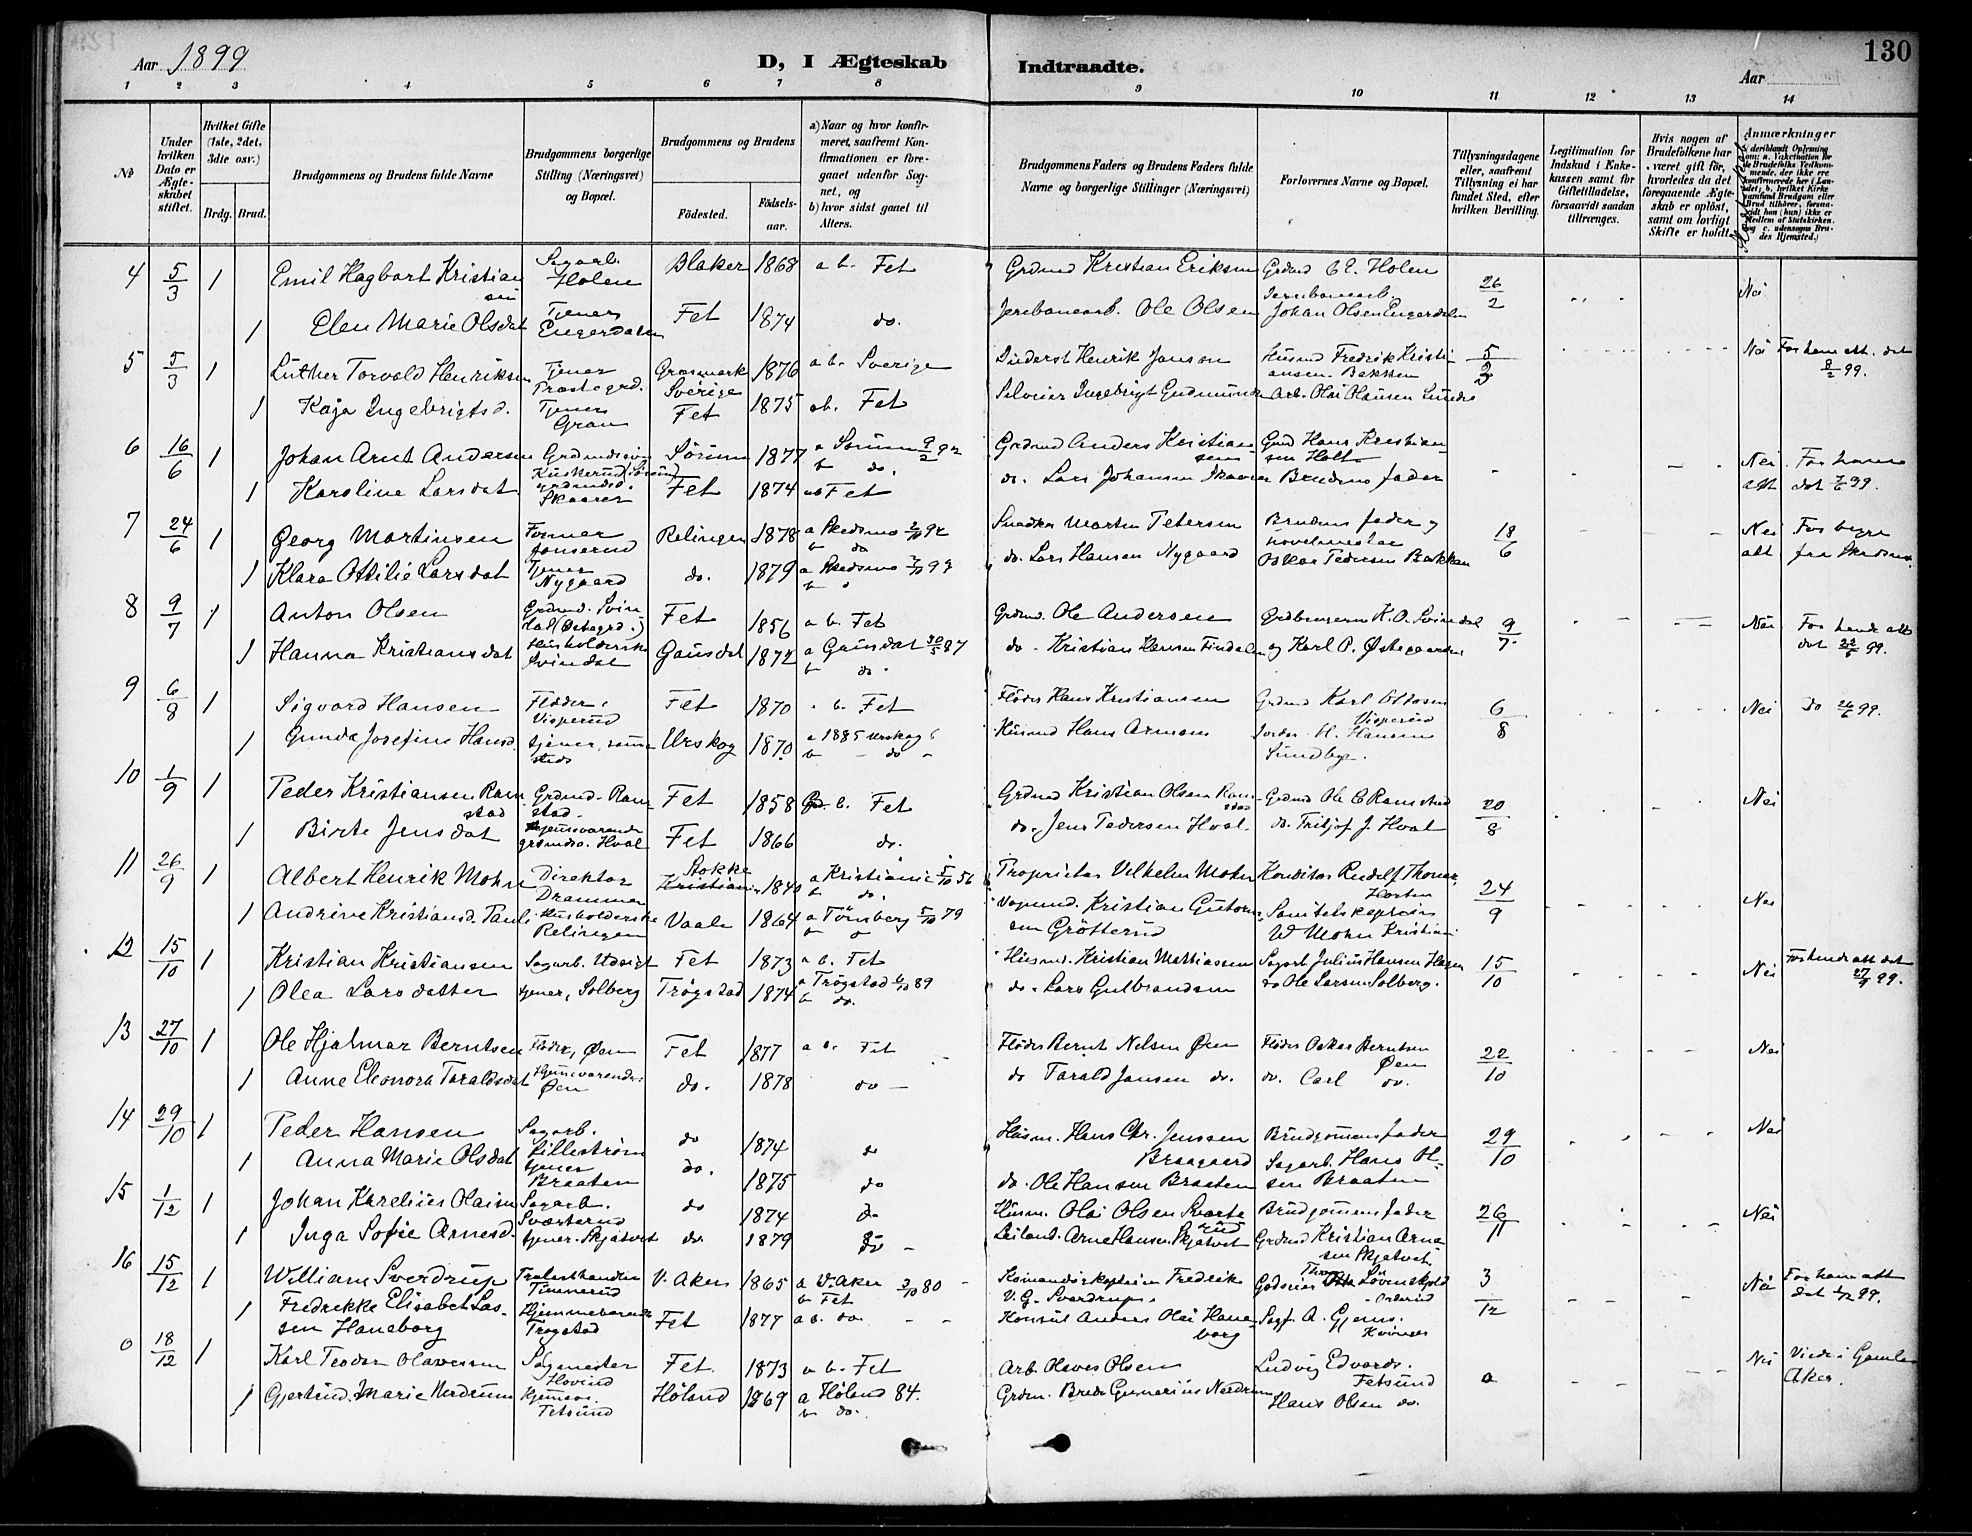 Aar 1899 D, I Ægteskab Indtraadte. Aar 130
1 2 3 4 5 6 7 8 9 10 11 12 13 14
No
Under hvilken Dato er Ægteskabet stiftet.
Hvilket Gifte (1ste, 2det, 3die osv.)
Brdg. Brud.
Brudgommens og Brudens fulde Navne
Brudgommens borgerlige Stilling (Næringsvei) og Bopæl.
Brudgommens og Brudens
Fødested. Fødselsaar.
a) Naar og hvor konfirmeret, saafremt Konfirmationen er foregaaet udenfor Sognet, og
b) hvor sidst gaaet til Alters.
Brudgommens Faders og Brudens Faders fulde Navne og borgerlige Stillinger (Næringsvei)
Forlovernes Navne og Bopæl.
Tillysningsdagene eller, saafremt Tillysning ei har fundet Sted, efter hvilken Bevilling.
Legitimation for Indskud i Enkekassen samt for Giftetilladelse, forsaavidt saadan tiltrænges.
Hvis nogen af Brudefolkene har været gift før, hvorledes da det foregaaende Ægteskab er opløst, samt om lovligt Skifte er holdt.
Anmærkninger
4 5/3 1 Emil Hagbart Kristiansen Sagarb. Holen Blaker 1868 a b. Fet Grdmd Kristian Eriksen Grdmd C E. Holen 26/2 Nei
1 Elen Marie Olsdat Tjener Engerdalen Fet 1874 do. Jernbanearb. Ole Olsen Jernbanearb. Johan Olsen Engerdalen
5 5/3 1 Luther Torvald Henriksen Tjener Prestegrd. Grasmark Sverige 1876 a b. Sverige Henrik Janson Husmd Fredrik Kristiansen Bakken 5/3 Nei For ham att. dat 8/2 99.
1 Kaja Ingebrigtsd. Tjener Gran Fet 1875 ab. Fet Selveier Ingebrigt Gudmundsen Arb. Olai Olausen Lunder
6 16/6 1 Johan Arnt Andersen Grdmdssøn Kuskerud (Sørum) Sørum 1877 a Sørum 9/2 92 b do. Grdmd Anders Kristiansen Grmd Hans Kristiansen Holt - Nei att For ham dat 7/6 99.
1 Karoline Larsdat grdmdsd. Skaarer Fet 1874 ab Fet do. Lars Johansen Skaarer Brudens fader
7 24/6 1 Georg Martinsen Former Jonserud Relingen 1878 a Skedsmo 2/10 92 b do Snedker Morten Petersen Brudens fader og 18/6 Nei att For begge fra Skedsmo
1 Klara Ottilie Larsdat Tjener Nygaard do. 1879 a Skedsmo b " do. Lars Hansen Nygaard Oskar Pedersen Bakken
8 9/7 1 Anton Olsen Grdmd. Svindal (Østegrd.) Fet 1856 a b. Fet Grdmd. Ole Andersen Grdbrugerne K. O. Svindal 9/7 Nei For hende att dat 22/6 99.
1 Hanna Kristiansdat Husholderske Svindal Gausdal 1872 a Gausdal 30/5 87 b do. do. Kristian Hansen og Karl P. Østegaarden
9 6/8 1 Sigvard Hansen Fløder Visperud Fet 1870 a b. Fet Fløder Hans Kristiansen Grdmd Karl Ottosen Visperud 6/8 Nei Do 26/6 99.
1 Gunda Josefine Hansd. tjener, sammesteds Urskog 1870. a 1885 Urskog b - do - Husmd Hans Arnesen H. Hansen Sundbye.
10 1/9 1 Peder Kristiansen Ramstad Grdmd. Ramstad. Fet 1858 b. Fet Grdmd Kristian Olsen Ramstad Grdmd Ole C Ramstad 20/8 Nei
1 Birte Jensdat Hjemmeværende grdmdsd. Hval Fet 1866 do. do. Jens Pedersen Hval do. Fritjof J. Hval
11 26/9 1 Albert Henrik Mohn Direktør Drammen Stokke Kristiania 1840 a Kristiania 5/10 56 b do. Proprietær Vilhelm Mohn Konditor Rudolf Thomas Horten 24/9 Nei
1 Andrine Kristiansd. Pauli Husholderske Relingen Vaale 1864 a Tønsberg 5/10 79 b " Kristian Gutormsen Grøtterud Sanitetskaptein W Mohn Kristiania
12 15/10 1 Kristian Kristiansen Sagarb. Udsigt Fet 1873 a b. Fet Husmd. Kristian Mattiassen Sagarb Julius Hansen Hagen 15/10 Nei For hende att dat 27/9 99.
1 Olea Larsdatter tjener, Solberg Trøgstad 1874 a Trøgstad 6/10 89 b do. do. Lars Gulbrandsen do Ole Larsen Solberg.
13 27/10 1 Ole Hjalmar Berntsen Fløder, Øen Fet 1877 a b. Fet Fløder Bernt Nilsen Øen Fløder Oskar Berntsen Øen 22/10 Nei
1 Anne Eleonora Taraldsdat Hjemmeværende Øen do. 1878 do - do Tarald Jansen do. do. Carl do.
14 29/10 1 Peder Hansen Sagarb. Lillestrøm do 1874 do Husm. Hans Chr. Jenssen Braagaard Brudgommens fader 29/10 Nei
1 Anna Marie Olsdat tjener Braaten do. 1875 do do. Ole Hansen Braaten Sagarb. Hans Olsen Braaten
15 1/12 1 Johan Karelius Olaisen Sagarb. Sværterud do 1874 do Husm. Olai Olsen Sværterud Brudgommens fader 26/11 Nei
1 Inga Sofie Arnesd. tjener. Skjatvet do. 1879 do - Leiland. Arne Hansen Skjatvet Grdmd Kristian Arnesen Skjatvet
16 15/12 1 William Sverdrup Trælasthandler V. Aker 1865 a V. Aker 3/10 80 b Fet Komandørkaptein Fredrik V. G. Sverdrup. Godseier Løvenskiold 3/12 Nei For ham att dat 1/12 99.
1 Fredrikke Elisabet Lassen Haneborg Hjemmeværende Trøgstad Fet 1877 a b. do. - - Konsul Anders Olai Haneborg A. Gjems.
0 18/12 1 Karl Teodor Olavesen Sagmester Hovind Fet. 1873 a b. Fet Arb. Olaves Olsen Ludvig Edvards. Fetsund 0 Nei Viede i Gamle Aker.
1 Gjertrud Marie Nerdrum hjemmev. Fetsund Høland 1869 a Høland 84. b do. Grdm. Brede Gunerius Nerdrum Hans Olsen do.